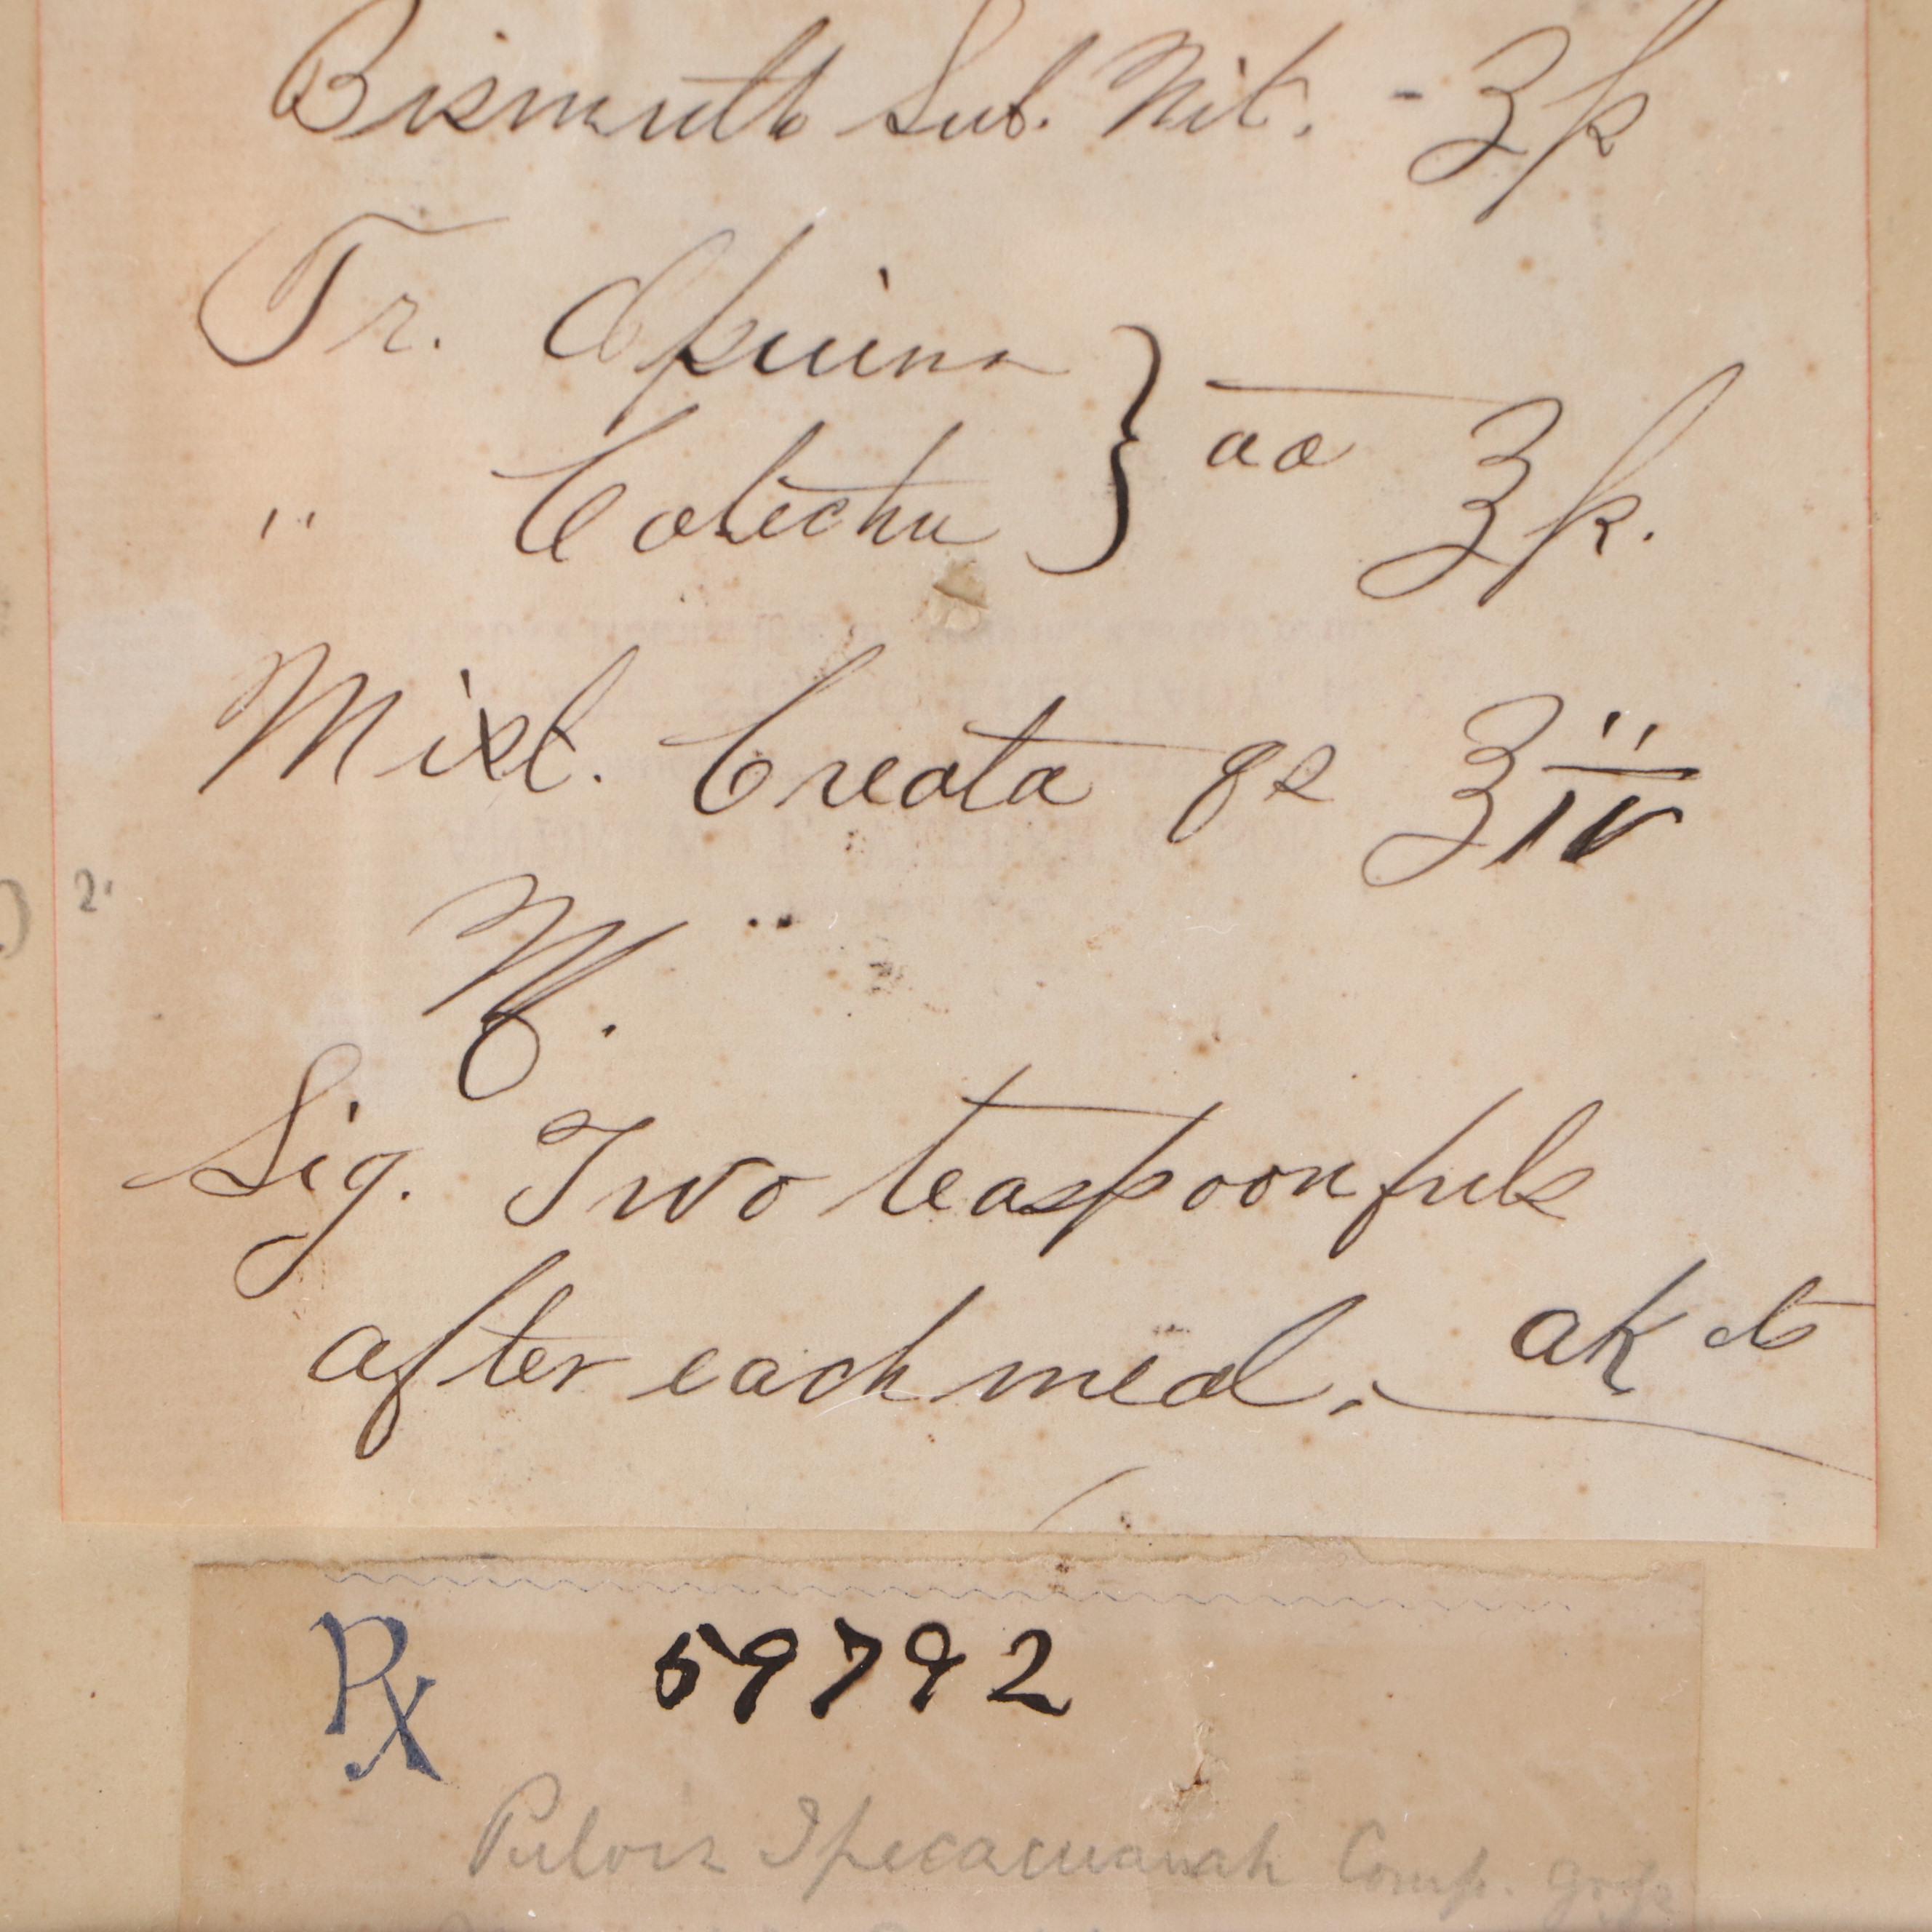 Bismuth Sub. Nit. - ʒ fs
Tr. Opium
" Catechu } aa ʒ fs.
Mixt. Creata qs ʒ ii/IV
M.
Sig. Two teaspoonfuls
after each meal.
2.
Rx 59792
Pulvis Ipecacuanah Comp.